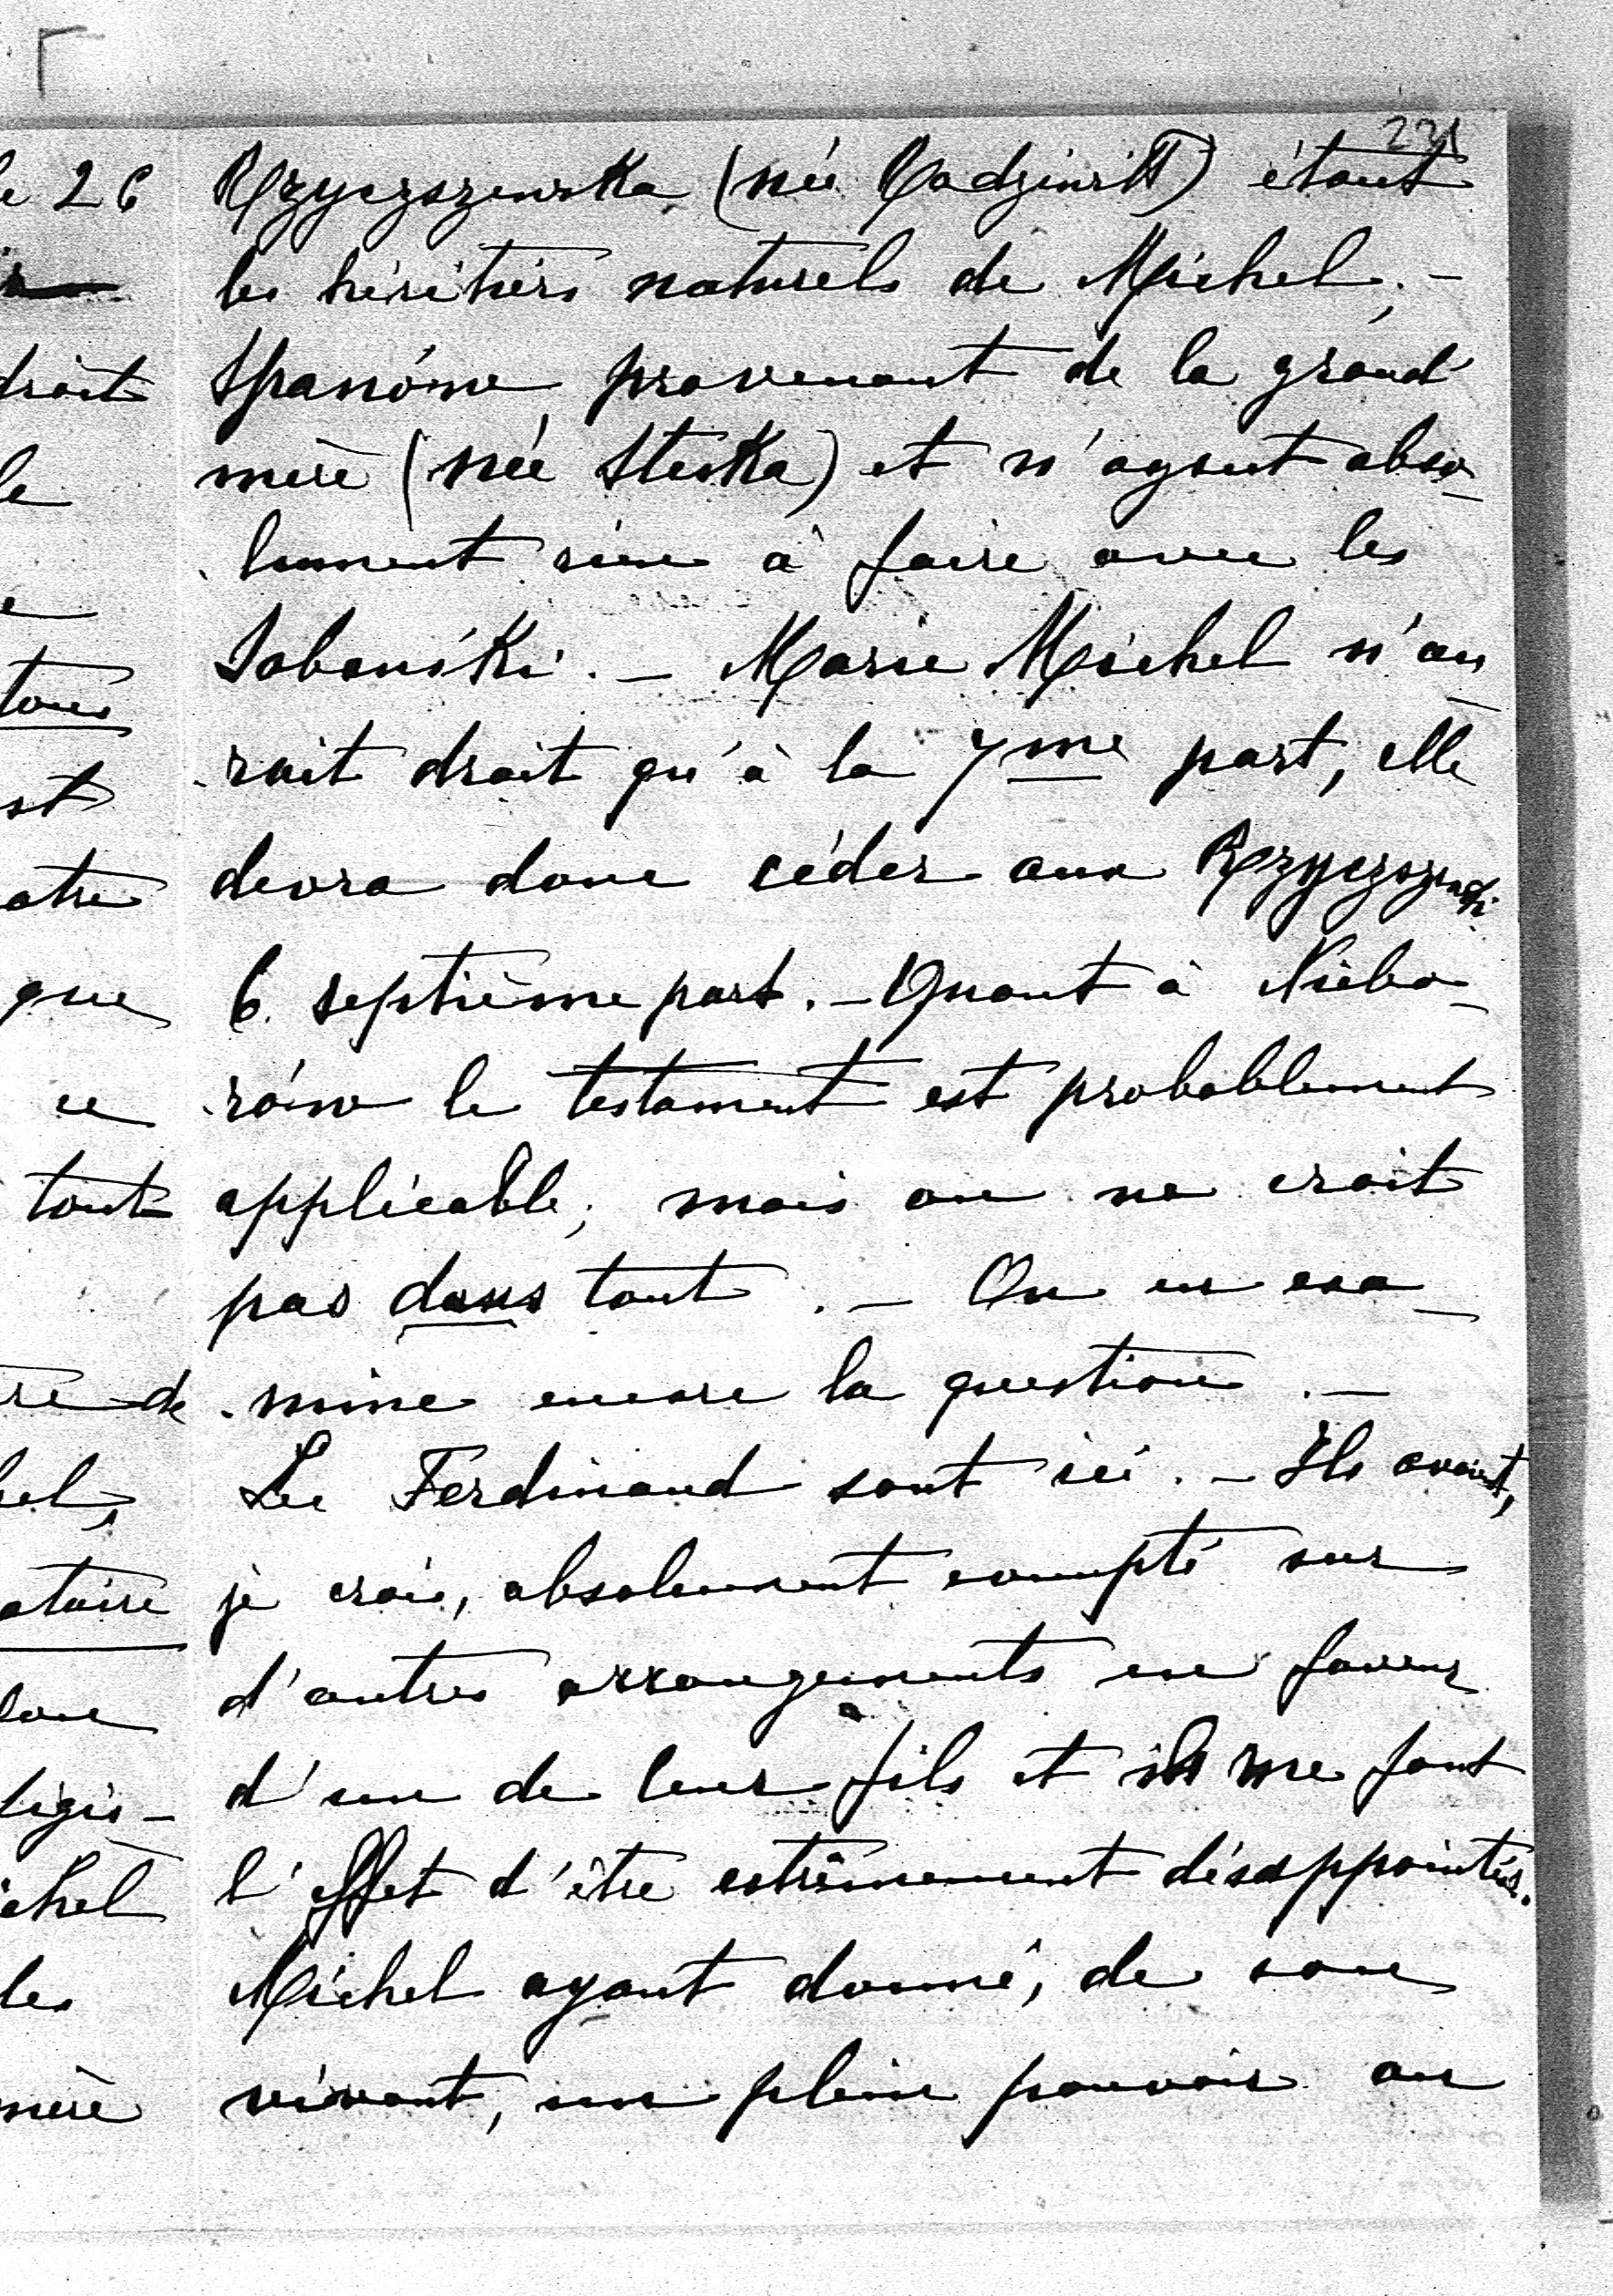 231
Rzyszczewska (née Radziwiłł) étant
les héritiers naturels de Michel; -
Spanów provenant de la grand'
mère (née Stecka) et n'ayant abso-
lument rien à faire avec les
Sobański. - Marie Michel n'au-
rait droit qu'à la 7me part, elle
devra donc céder aux Rzyszczewski
6. septième part. - Quant à Niebo-
rów le testament est probablement
applicable; mais on ne croit
pas dans tout. - On en exa-
mine encore la question. -
Les Ferdinand sont ici. - Ils avaient,
je crois, absolument compté sur
d'autres arrangements en faveur
d'un de leur fils et ils me font
l'effet d'être extrêmement désappointés.
Michel ayant donné, de son
vivant, un plein pouvoir au
26
droit
le
tous
st
que
ce
tout
re de
hel,
ataire
légis-
ichel
les
mère